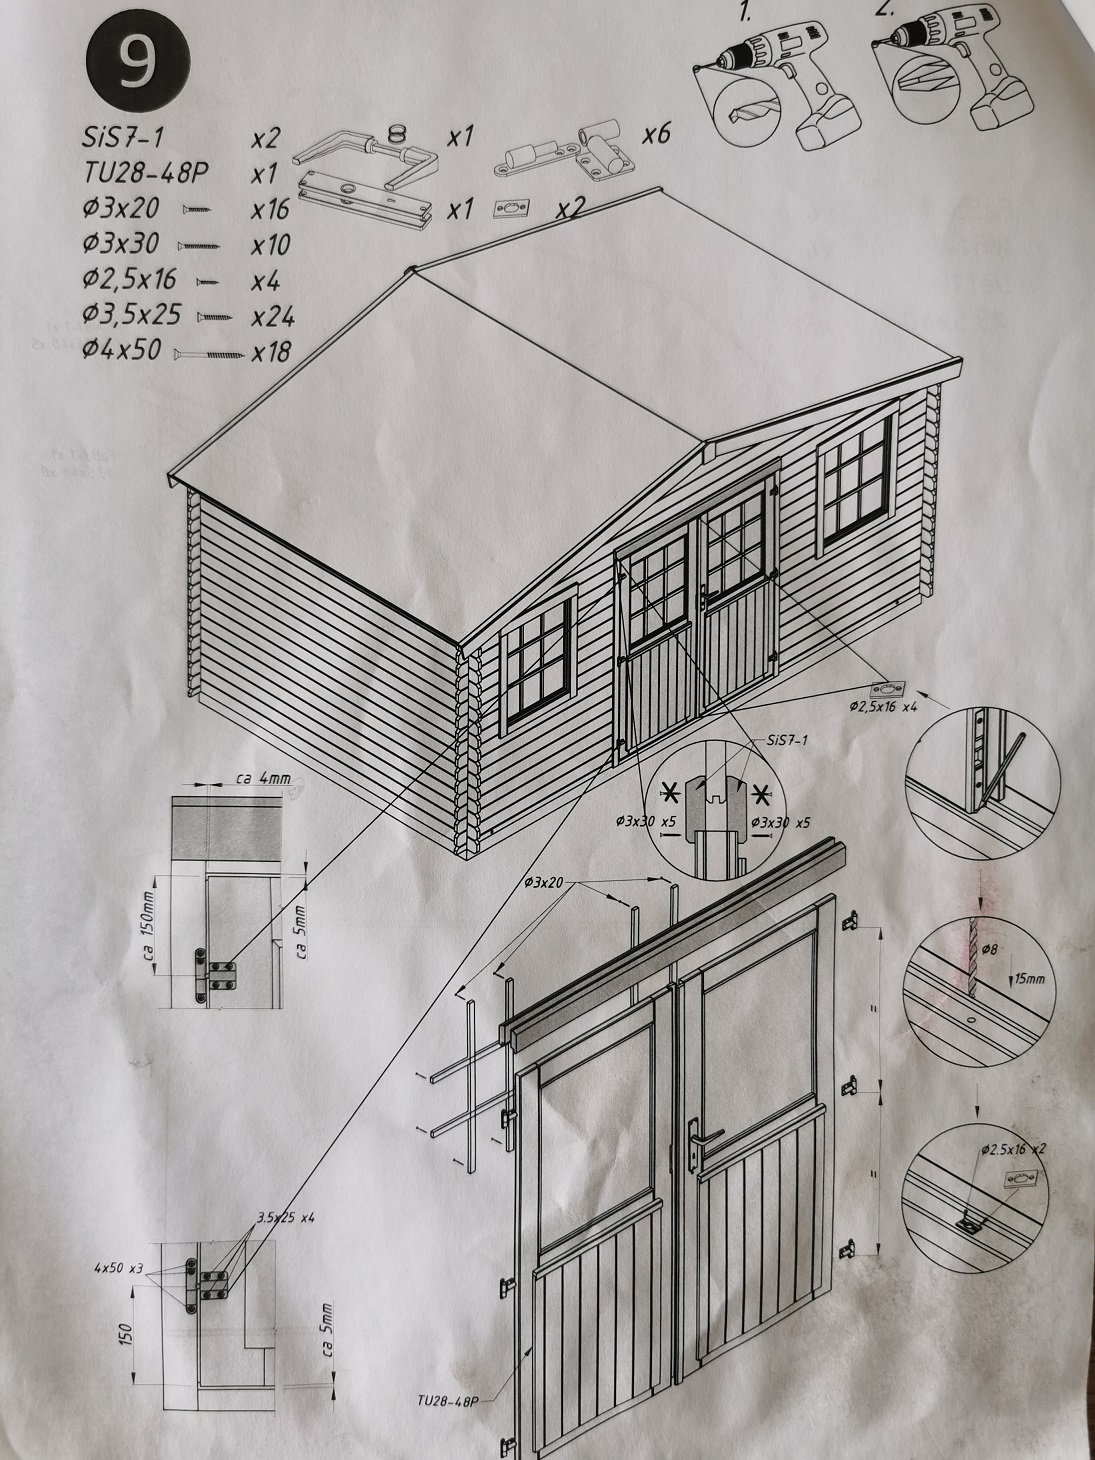 9
1.
2.
SiS7-1 x2
TU28-48P x1
Ø3x20 x16
Ø3x30 x10
Ø2,5x16 x4
Ø3,5x25 x24
Ø4x50 x18
x1
x6
x1
x2
Ø2,5x16 x4
SiS7-1
Ø3x30 x5
Ø3x30 x5
ca 4mm
ca 150mm
ca 5mm
Ø3x20
Ø8
15mm
=
=
Ø2.5x16 x2
3.5x25 x4
4x50 x3
150
ca 5mm
TU28-48P